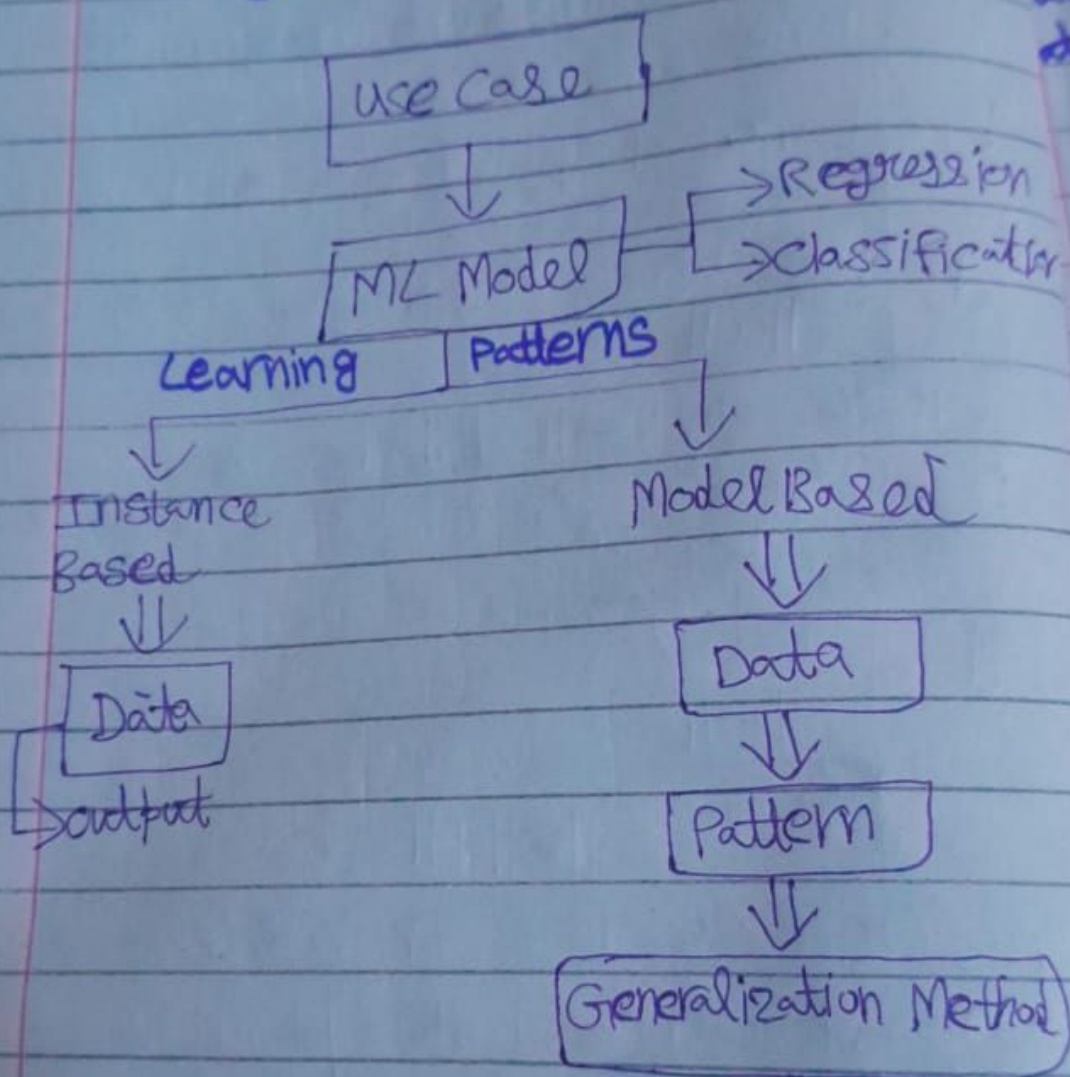 Use Case
ML Model
Regression
Classification
Learning Patterns
Instance
Based
Model Based
Data
output
Data
Pattern
Generalization Method